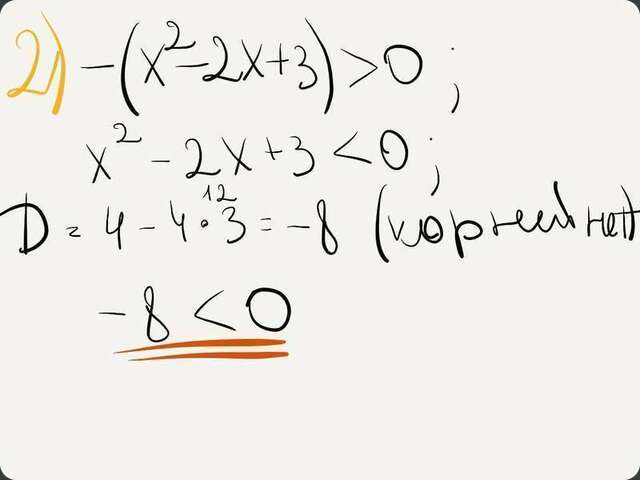 2) -(x²-2x+3)>0;
x²-2x+3<0;
12
D=4-4·3=-8 (корней нет)
-8<0